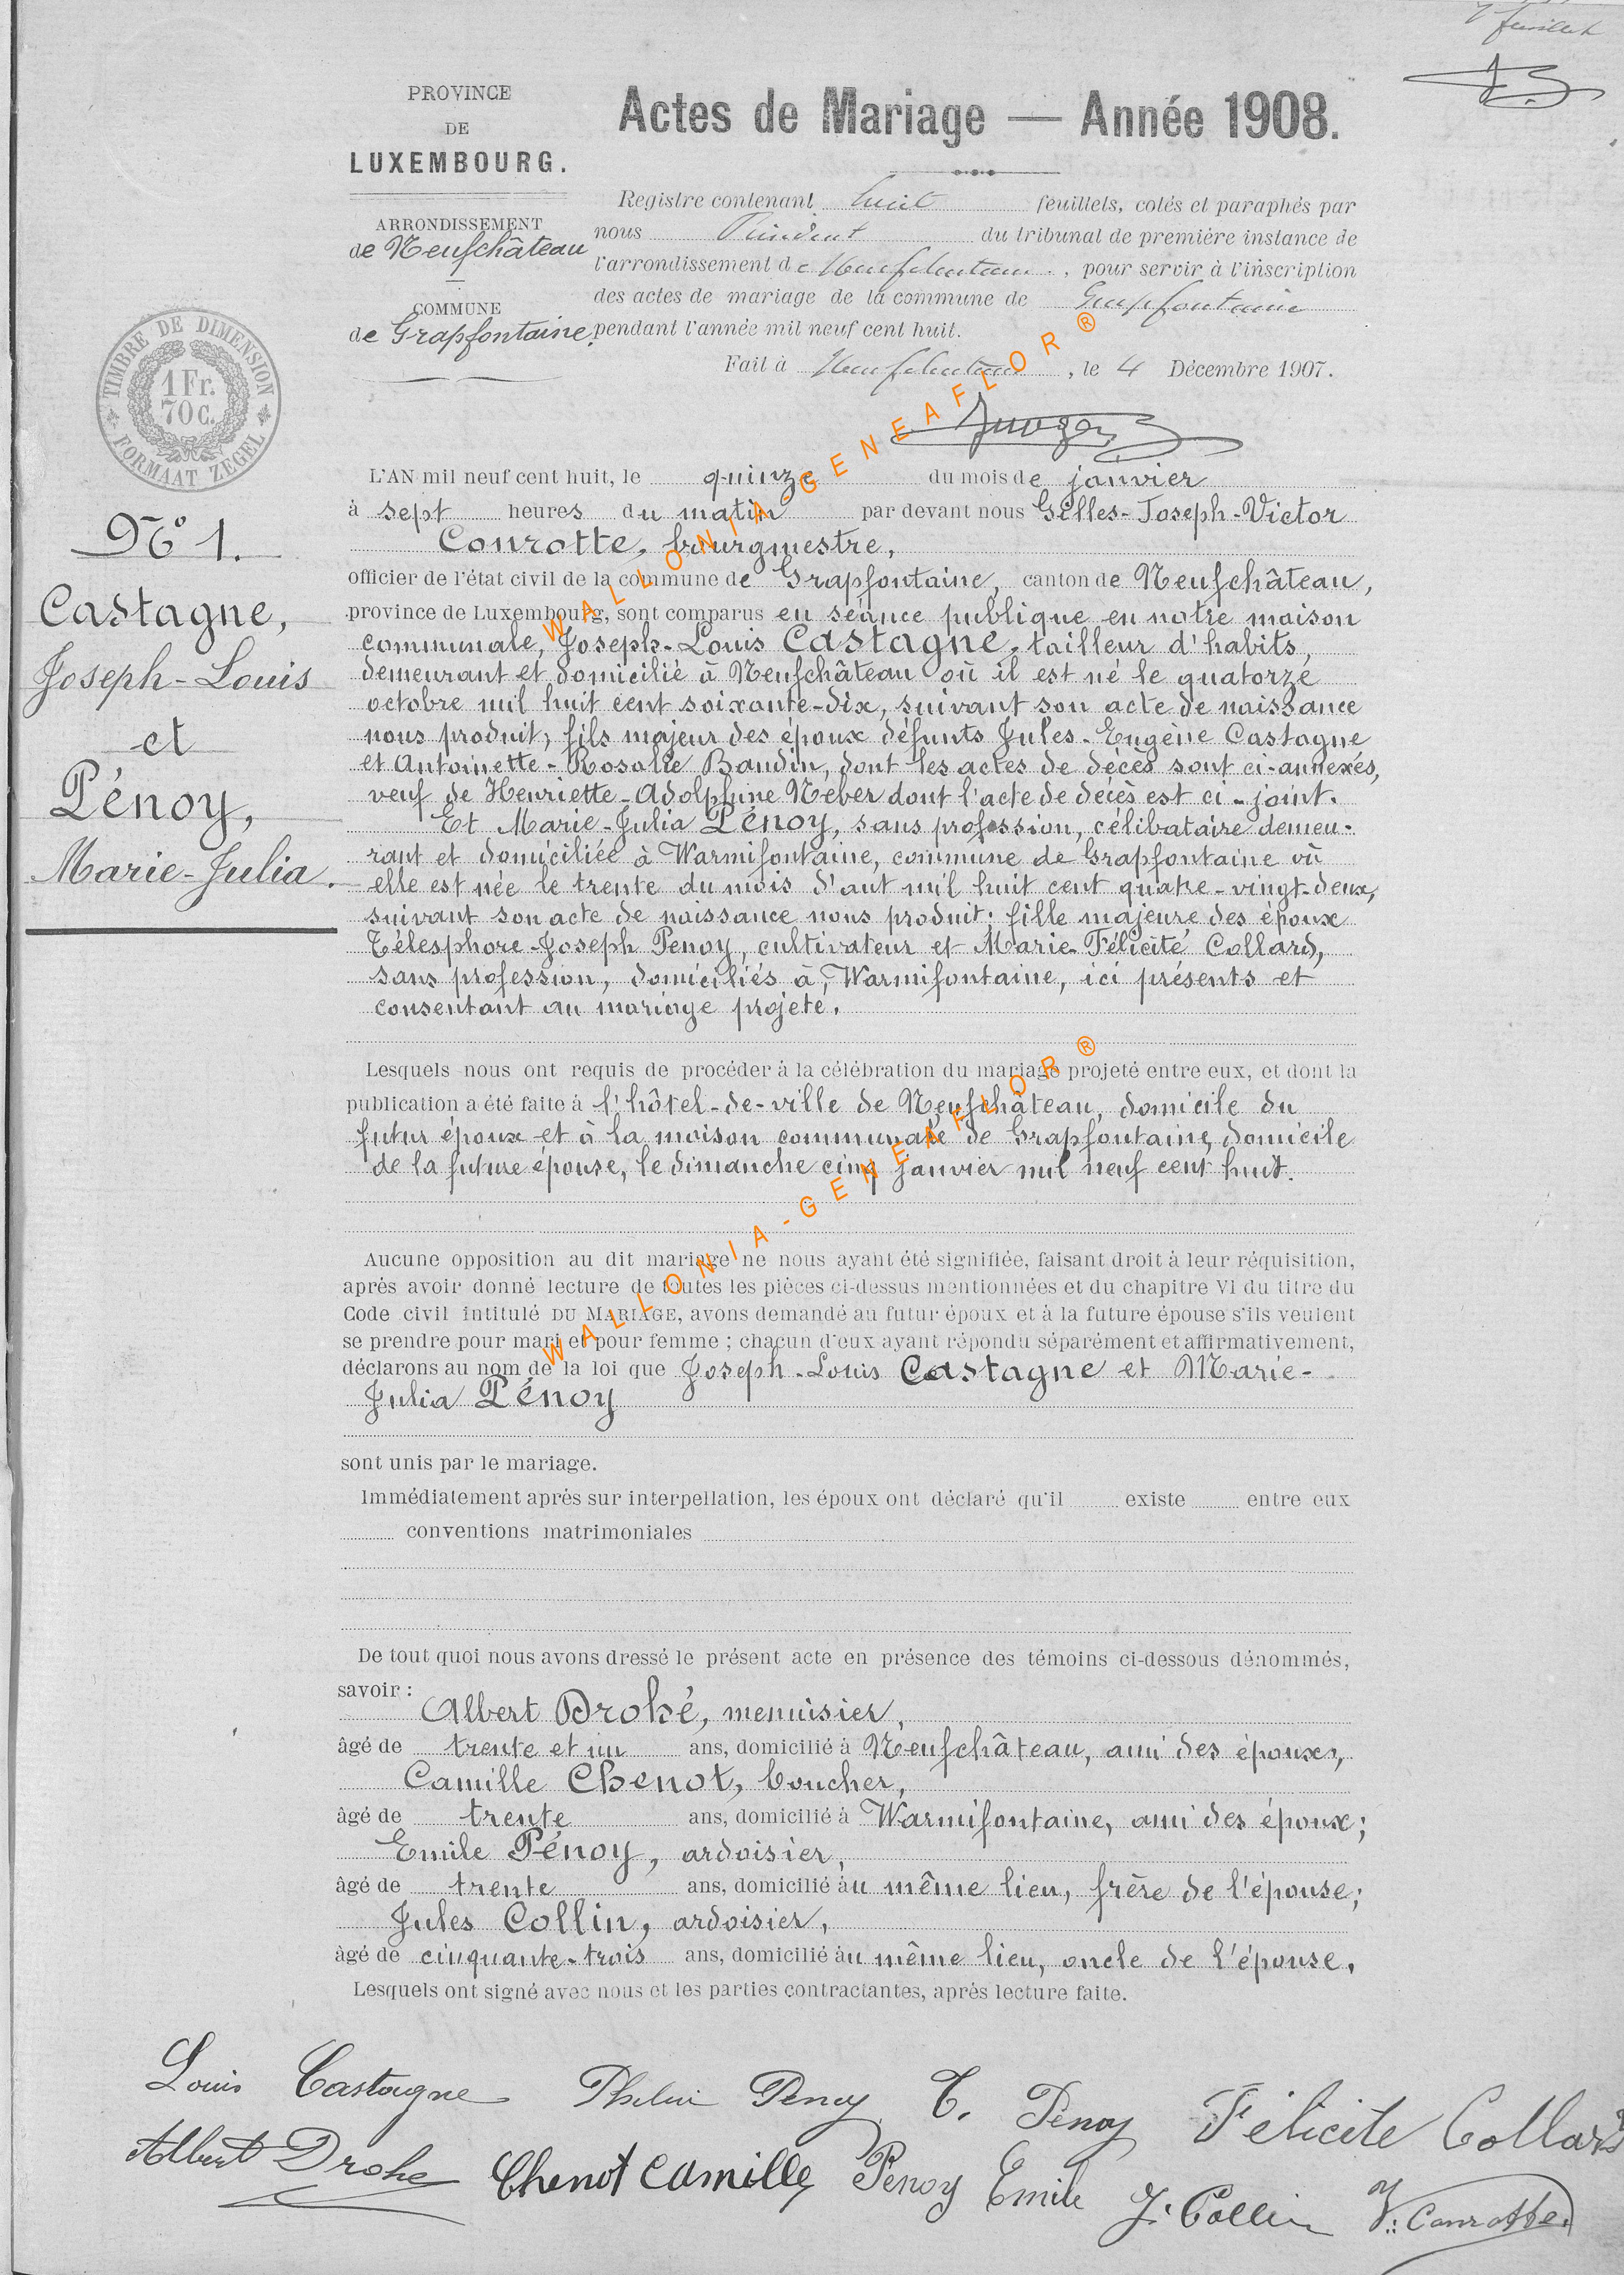 1er feuillet
PROVINCE
DE
LUXEMBOURG.
ARRONDISSEMENT
de Neufchâteau
COMMUNE
de Grapfontaine.
Actes de Mariage — Année 1908.
Registre contenant huit feuillets, cotés et paraphés par
nous Président du tribunal de première instance de
l'arrondissement de Neufchateau, pour servir à l'inscription
des actes de mariage de la commune de Grapfontaine
pendant l'année mil neuf cent huit.
Fait à Neufchateau, le 4 Décembre 1907.
TIMBRE DE DIMENSION
1 Fr.
70 c.
FORMAAT ZEGEL
N° 1.
Castagne,
Joseph-Louis
et
Pénoy,
Marie-Julia.
L'AN mil neuf cent huit, le quinze du mois de janvier
à sept heures du matin par devant nous Gilles-Joseph-Victor
Conrotte, bourgmestre,
officier de l'état civil de la commune de Grapfontaine, canton de Neufchâteau,
province de Luxembourg, sont comparus en séance publique en notre maison
communale, Joseph-Louis Castagne, tailleur d'habits,
demeurant et domicilié à Neufchâteau où il est né le quatorze
octobre mil huit cent soixante-dix, suivant son acte de naissance
nous produit, fils majeur des époux défunts Jules-Eugène Castagne
et Antoinette-Rosalie Baudin, dont les actes de décès sont ci-annexés,
veuf de Henriette-Adolphine Neber dont l'acte de décès est ci-joint.
Et Marie-Julia Pénoy, sans profession, célibataire demeu-
rant et domiciliée à Warmifontaine, commune de Grapfontaine où
elle est née le trente du mois d'aut mil huit cent quatre-vingt-deux,
suivant son acte de naissance nous produit; fille majeure des époux
Télesphore-Joseph Penoy, cultivateur et Marie-Félicité Collard,
sans profession, domiciliés à Warmifontaine, ici présents et
consentant au mariage projeté.
Lesquels nous ont requis de procéder à la célébration du mariage projeté entre eux, et dont la
publication a été faite à l'hôtel-de-ville de Neufchâteau, domicile du
futur époux et à la maison communale de Grapfontaine, domicile
de la future épouse, le dimanche cinq janvier mil neuf cent huit.
Aucune opposition au dit mariage ne nous ayant été signifiée, faisant droit à leur réquisition,
après avoir donné lecture de toutes les pièces ci-dessus mentionnées et du chapitre VI du titre du
Code civil intitulé DU MARIAGE, avons demandé au futur époux et à la future épouse s'ils veulent
se prendre pour mari et pour femme ; chacun d'eux ayant répondu séparément et affirmativement,
déclarons au nom de la loi que Joseph-Louis Castagne et Marie-
Julia Pénoy
sont unis par le mariage.
Immédiatement après sur interpellation, les époux ont déclaré qu'il existe entre eux
conventions matrimoniales
De tout quoi nous avons dressé le présent acte en présence des témoins ci-dessous dénommés,
savoir :
Albert Drohé, menuisier,
âgé de trente et un ans, domicilié à Neufchâteau, ami des époux,
Camille Chenot, boucher,
âgé de trente ans, domicilié à Warmifontaine, ami des époux;
Emile Pénoy, ardoisier,
âgé de trente ans, domicilié au même lieu, frère de l'épouse;
Jules Collin, ardoisier,
âgé de cinquante-trois ans, domicilié au même lieu, oncle de l'épouse.
Lesquels ont signé avec nous et les parties contractantes, après lecture faite.
Louis Castagne Penoy T. Penoy Félicité Collard
Albert Drohe Chenot Camille Penoy Emile J. Collin V. Conrotte
WALLONIA-GENEAFLOR®
WALLONIA-GENEAFLOR®